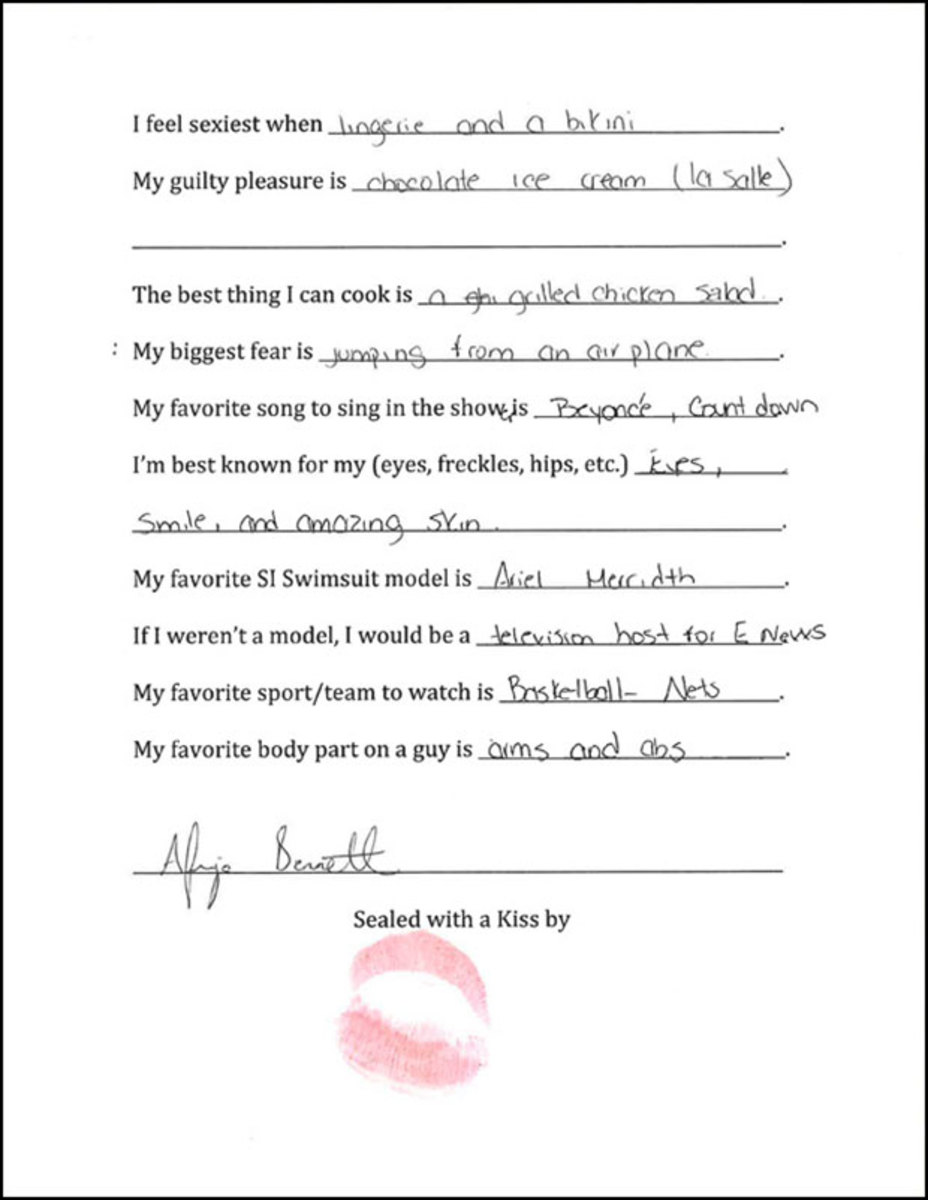 I feel sexiest when lingerie and a bikini.
My guilty pleasure is chocolate ice cream (la salle)
.
The best thing I can cook is a grilled chicken salad.
: My biggest fear is jumping from an airplane.
My favorite song to sing in the shower is Beyoncé, Count down
I'm best known for my (eyes, freckles, hips, etc.) Eyes,.
Smile, and amazing skin.
My favorite SI Swimsuit model is Ariel Merridth.
If I weren't a model, I would be a television host for E News
My favorite sport/team to watch is Basketball- Nets.
My favorite body part on a guy is arms and abs.
Bennett
Sealed with a Kiss by